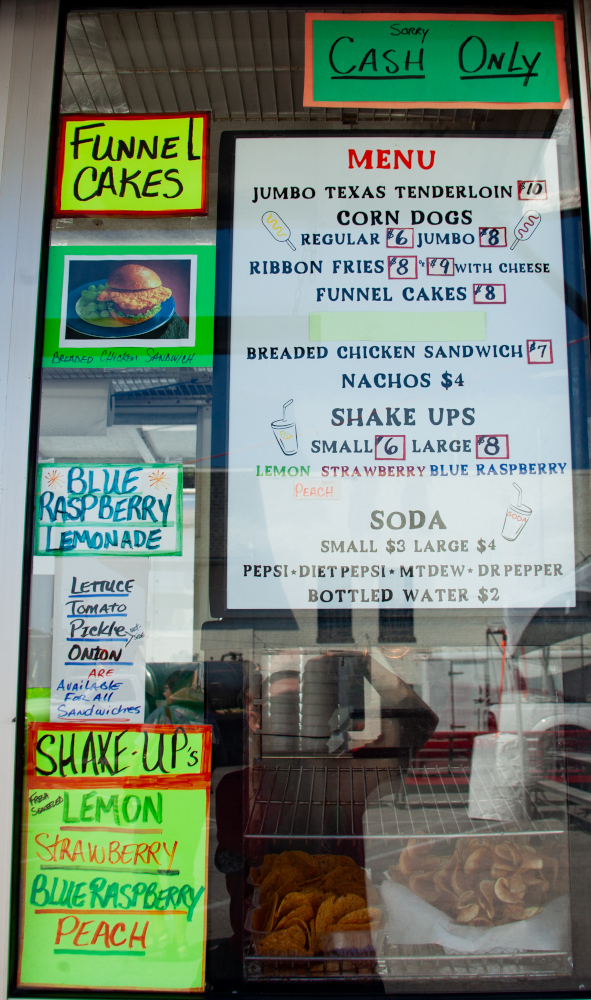 SORRY
CASH ONLY
FUNNEL
CAKES
BREADED CHICKEN SANDWICH
BLUE
RASPBERRY
LEMONADE
LETTUCE
TOMATO
Pickle
ONION
ARE
AVAILABLE
FOR ALL
SANDWICHES
SHAKE-UP's
FRESH
SQUEEZED
LEMON
STRAWBERRY
BLUE RASPBERRY
PEACH
MENU
JUMBO TEXAS TENDERLOIN $10
CORN DOGS
REGULAR $6 JUMBO $8
RIBBON FRIES $8 $9 WITH CHEESE
FUNNEL CAKES $8
BREADED CHICKEN SANDWICH $7
NACHOS $4
SHAKE UPS
SMALL $6 LARGE $8
LEMON STRAWBERRY BLUE RASPBERRY
PEACH
SODA
SODA
SMALL $3 LARGE $4
PEPSI★DIET PEPSI★MT DEW★DR PEPPER
BOTTLED WATER $2